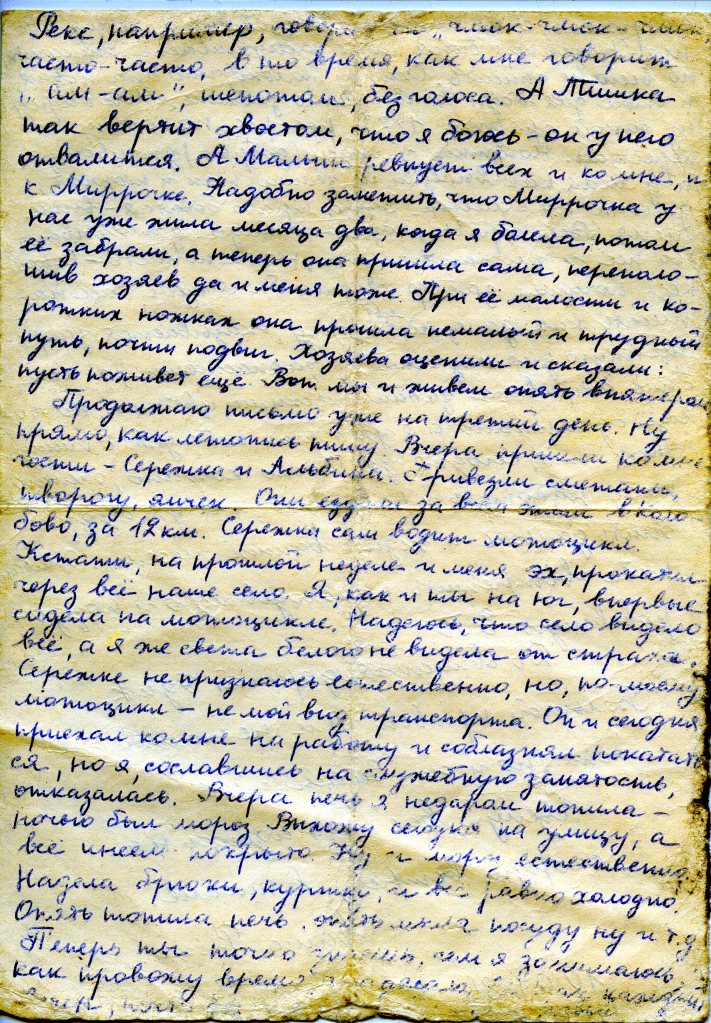 Рекс, например, говорит „чмок-чмок-чмок,
часто-часто, в то время, как мне говорит
„ам-ам", шепотом, без голоса. А Тишка
так вертит хвостом, что я боюсь - он у него
отвалится. А Малыш ревнует всех и ко мне, и
к Миррочке. Надобно заметить, что Миррочка у
нас уже жила месяца два, когда я болела, потом
её забрали, а теперь она пришла сама, переполо-
шив хозяев да и меня тоже. При её малости и ко-
ротких ножках она прошла немалый и трудный
путь, почти подвиг. Хозяева оценили и сказали:
пусть поживет ещё. Вот мы и живем опять впятером
Продолжаю письмо уже на третий день. Ну
прямо, как летопись пишу Вчера пришли ко мне
гости - Сережка и Альбина. Привезли сметаны,
творогу, яичек. Они ездили за всем этим в
бово, за 12 км. Сережка сам водит мотоцикл.
Кстати, на прошлой неделе и меня эх, прокатил
через всё наше село. Я, как и ты на юг, впервые
сидела на мотоцикле. Надеюсь, что село видело
всё, а я же света белого не видела от страха.
Сережке не признаюсь естественно, но, по-моему
мотоцикл - не мой вид транспорта. Он и сегодня
приехал ко мне на работу и соблазнял покатать
ся, но я, сославшись на служебную занятость,
отказалась. Вчера печь я недаром топила -
ночью был мороз Выхожу сегодня на улицу, а
всё инеем покрыто. Ну и мерзну естественно
Надела брюки, куртку, и всё равно холодно.
Опять топила печь, опять мыла посуду ну и т.д
Теперь ты точно знаешь, чем я занимаюсь
как провожу время